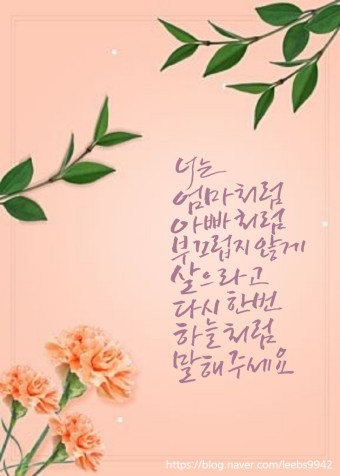 너는
엄마처럼
아빠처럼
부끄럽지 않게
살으라고
다시 한번
하늘처럼
말해 주세요
https://blog.naver.com/leebs9942